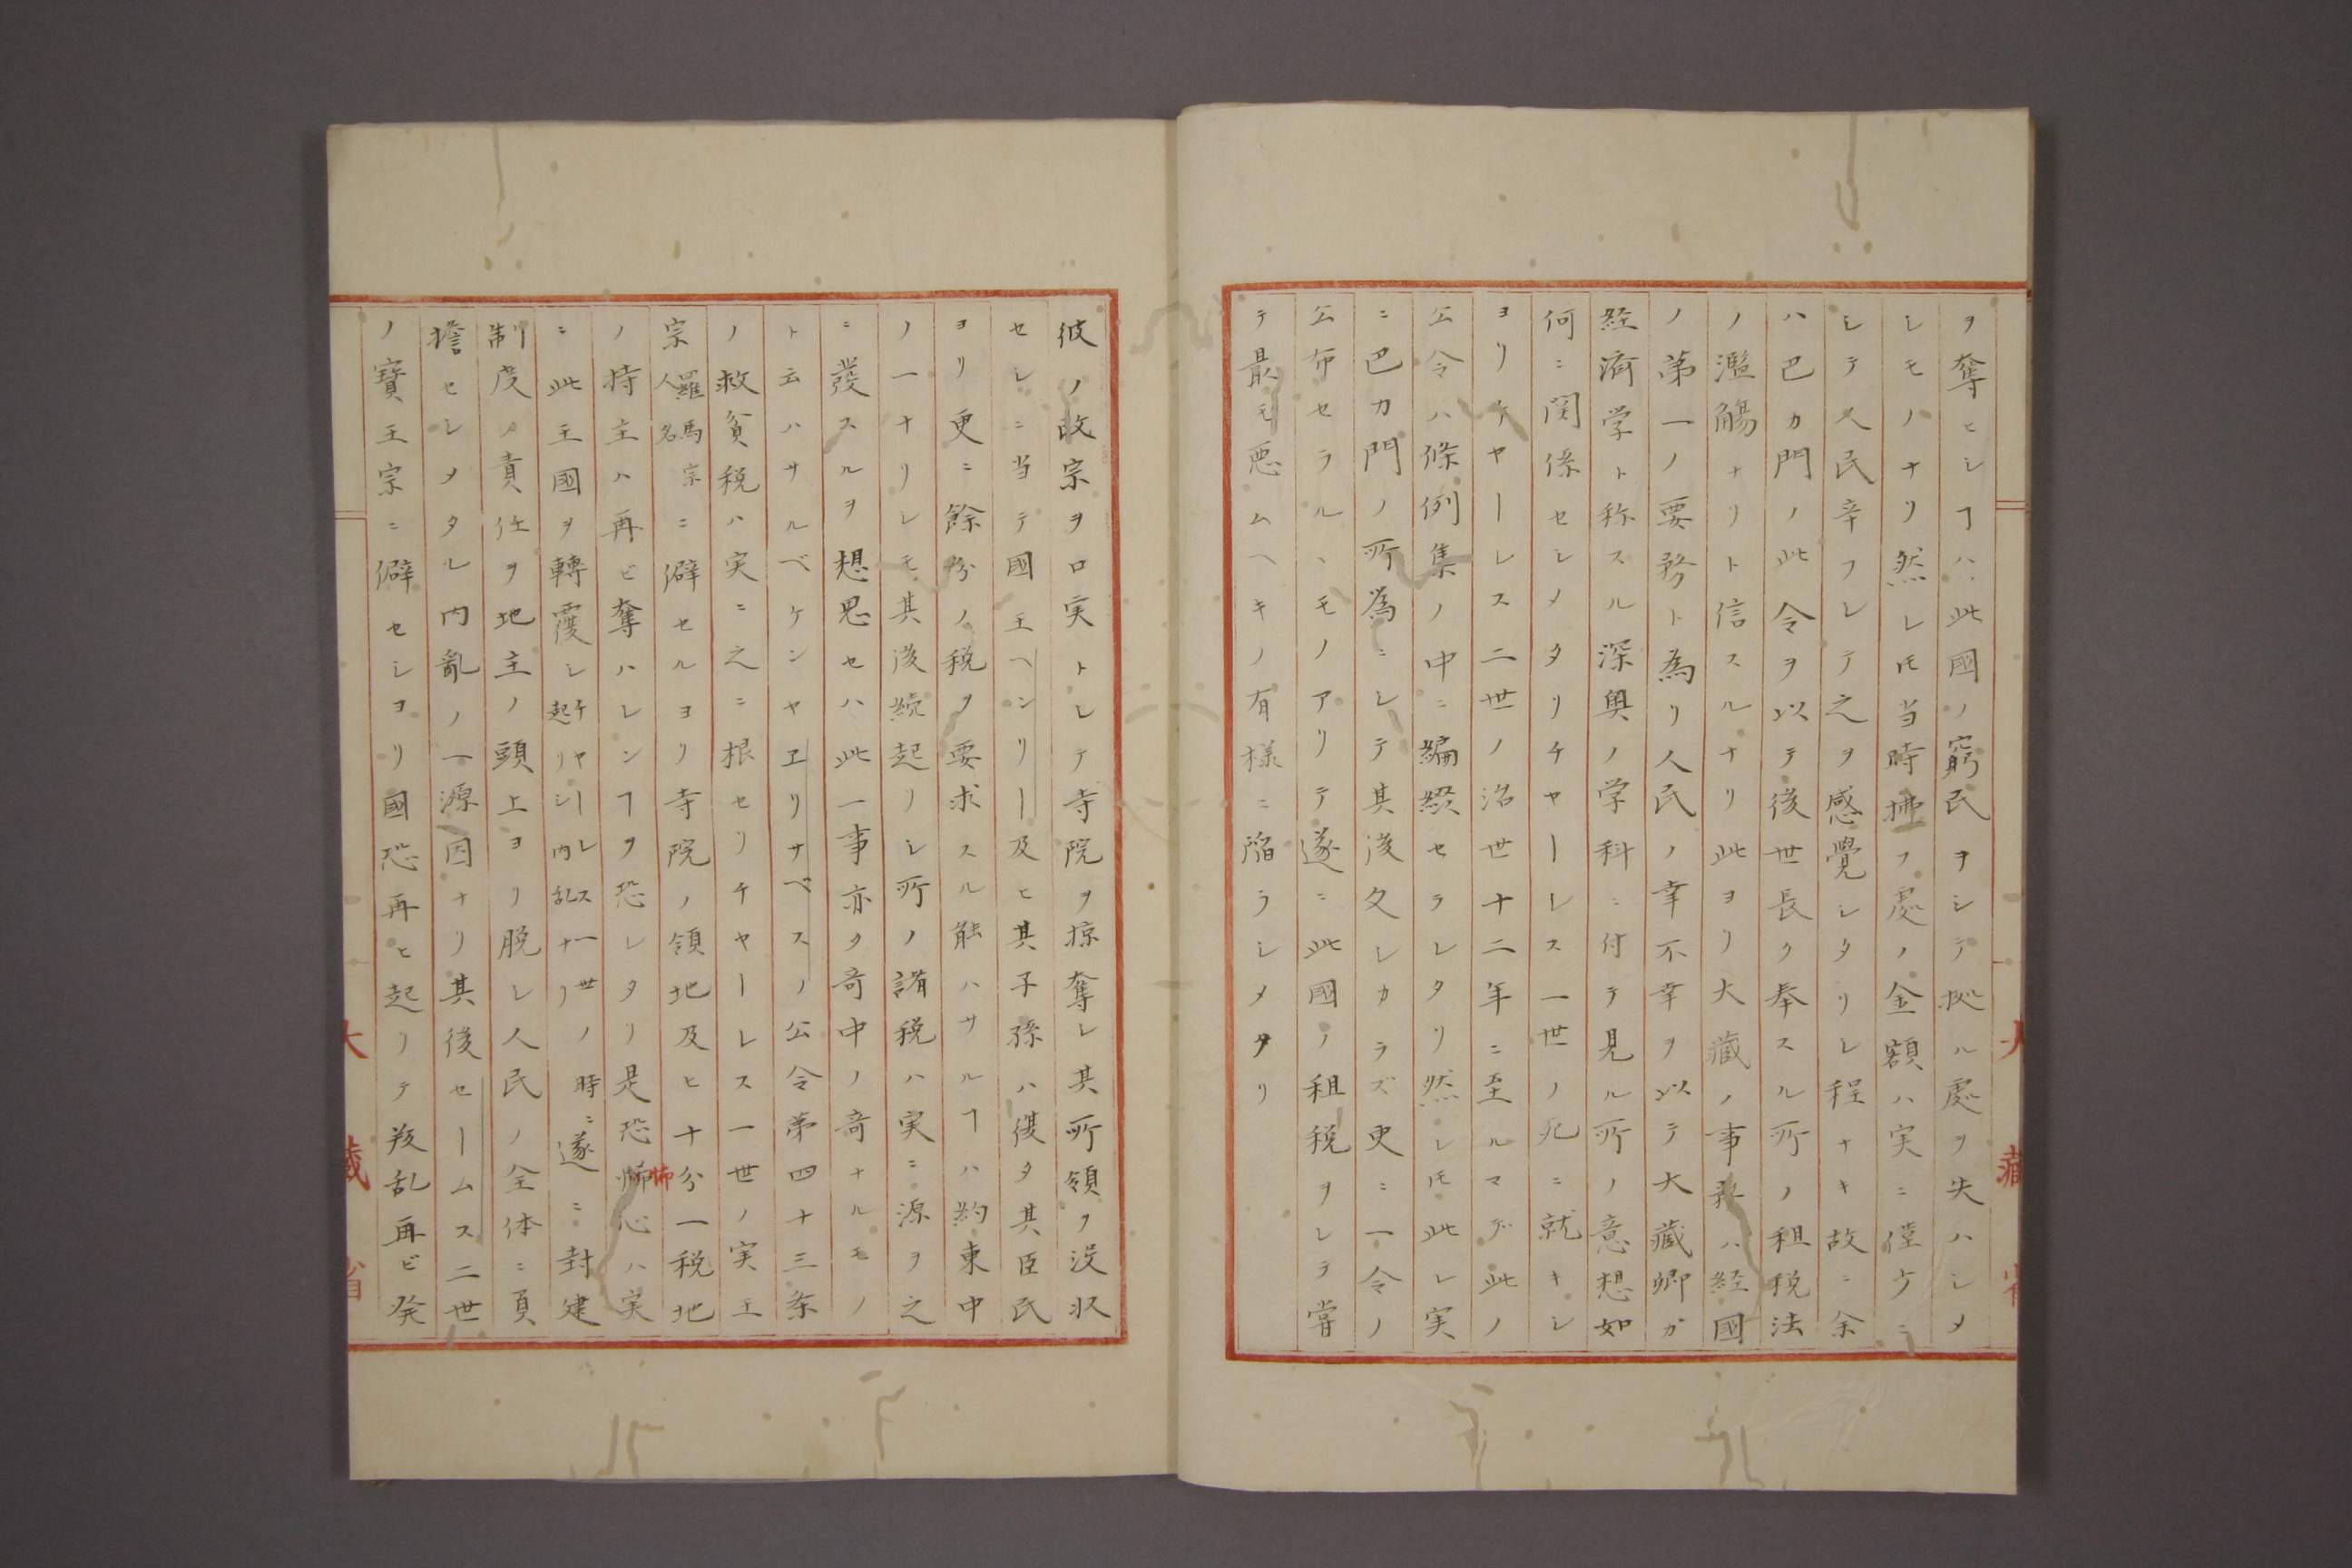 ヲ奪ヒシヿハ此國ノ窮民ヲシテ拠ル處ヲ失ハシメ
シモノナリ然レ𪜈当時拂フ處ノ金額ハ実ニ僅少ニ
シテ人民辛フレテ之ヲ感覺シタリレ程ナキ故ニ余
ハ巴カ門ノ此令ヲ以テ後世長ク奉スル所ノ租税法
ノ濫觴ナリト信スルナリ此ヨリ大藏ノ事務ハ経國
ノ第一ノ要務ト為リ人民ノ幸不幸ヲ以テ大藏卿ガ
経済学ト称スル深奥ノ学科ニ付テ見ル所ノ意想如
何ニ関係セシメタリチヤーレス一世ノ死ニ就キシ
ヨリチヤーレス二世ノ治世十二年ニ至ルマデ此ノ
公令ハ條例集ノ中ニ編綴セラレタリ然レ𪜈此レ実
ニ巴カ門ノ所為ニレテ其後久レカラズ更ニ一令ノ
公布セラルヽモノアリテ遂ニ此國ノ租税ヲレテ嘗
テ最モ悪ムヘキノ有様ニ陥ラシメタリ
彼ノ故宗ヲロ実トレテ寺院ヲ掠奪レ其所領ヲ没収
セレニ当テ國王ヘンリー及ヒ其子孫ハ復タ其臣民
ヨリ更ニ餘分ノ税ヲ要求スル能ハサルヿハ約束中
ノ一ナリレモ其後続起リレ所ノ諸税ハ実ニ源ヲ之
ニ發スルヲ想思セハ此一事亦タ奇中ノ奇ナルモノ
ト云ハサルベケンヤヱリサベスノ公令第四十三条
ノ救貧税ハ実ニ之ニ根セリチヤーレス一世ノ実王
宗羅馬宗人名ニ僻セルヨリ寺院ノ領地及ヒ十分一税地
ノ持主ハ再ビ奪ハレンヿヲ恐レタリ是恐怖心ハ実
怖
ニ此王國ヲ轉覆シチヤーレス一世ノ時ニ起リシ内乱ナリ遂ニ封建
制度ノ責任ヲ地主ノ頭上ヨリ脱レ人民ノ全体ニ負
擔セレメタル内亂ノ一源因ナリ其後セームス二世
ノ寶王宗ニ僻セシヨリ國恐再ヒ起リテ叛乱再ビ発
大藏省